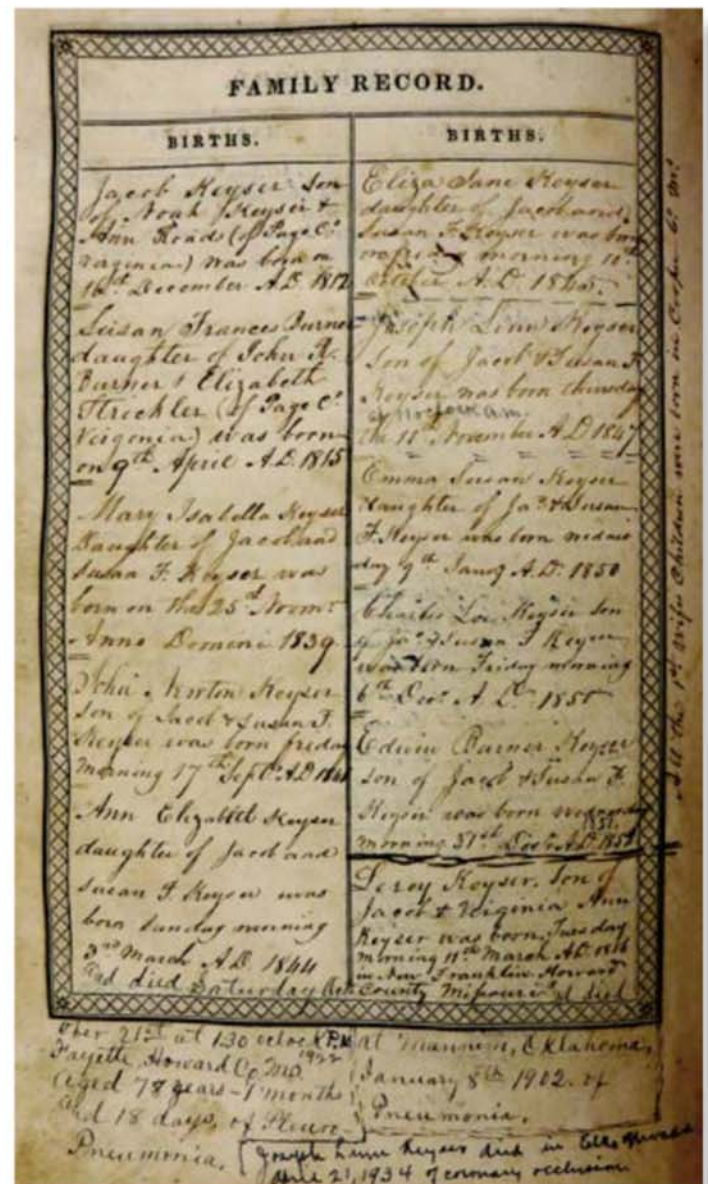 FAMILY RECORD.
BIRTHS.
Jacob Keyser son
of Noah Keyser &
Ann Roads (of Page Co.
Virginia) was born on
16th December A.D. 1812
Susan Frances Burner
daughter of John R.
Burner & Elizabeth
Strickler (of Page Co.
Virginia) was born
on 9th April A.D. 1815
Mary Isabella Keyser
Daughter of Jacob and
Susan F. Keyser was
born on the 25th
Anno Domini 1839
John Newton Keyser
son of Jacob & Susan F.
Keyser was born friday
morning 17th Sept. A.D.
Ann Elizabeth Keyser
daughter of Jacob and
Susan F Keyser was
born Sunday morning
3rd March A.D. 1844
and died Saturday
ober 21st at 1:30 oclock P.M.
1922
Fayette, Howard Co, Mo.
aged 78 years - 7 months
and 18 days, of Pleuro-
Pneumonia.
BIRTHS.
Eliza Jane Keyser
daughter of Jacob and
Susan F. Keyser was born
on morning 10th
October A.D. 1845.
Joseph Linn Keyser
Son of Jacob & Susan F
Keyser was born thursday
the 18th November A D 1847
Emma Susan Keyser
daughter of Jab. & Susan
F. Keyser was born
day 9th Jany A.D. 1850
Charles Keyser son
of & Susan F Keyser
was born Friday morning
6th A. D.
Edwin Burner Keyser
son of Jacob & Susan F.
Keyser was born
morning 31st A.D.
Leroy Keyser. Son of
Jacob & Virginia Ann
Keyser was born, Tuesday
morning 11th March A.D.
in New Franklin Howard
County Missouri and died
at Oklahoma,
January 8th 1902. of
Pneumonia.
Joseph Linn Keyser died in Elko Nevada
April 21, 1934 of coronary occlusion
All the 1st Wifes Children were born in Cooper Co. Mo.